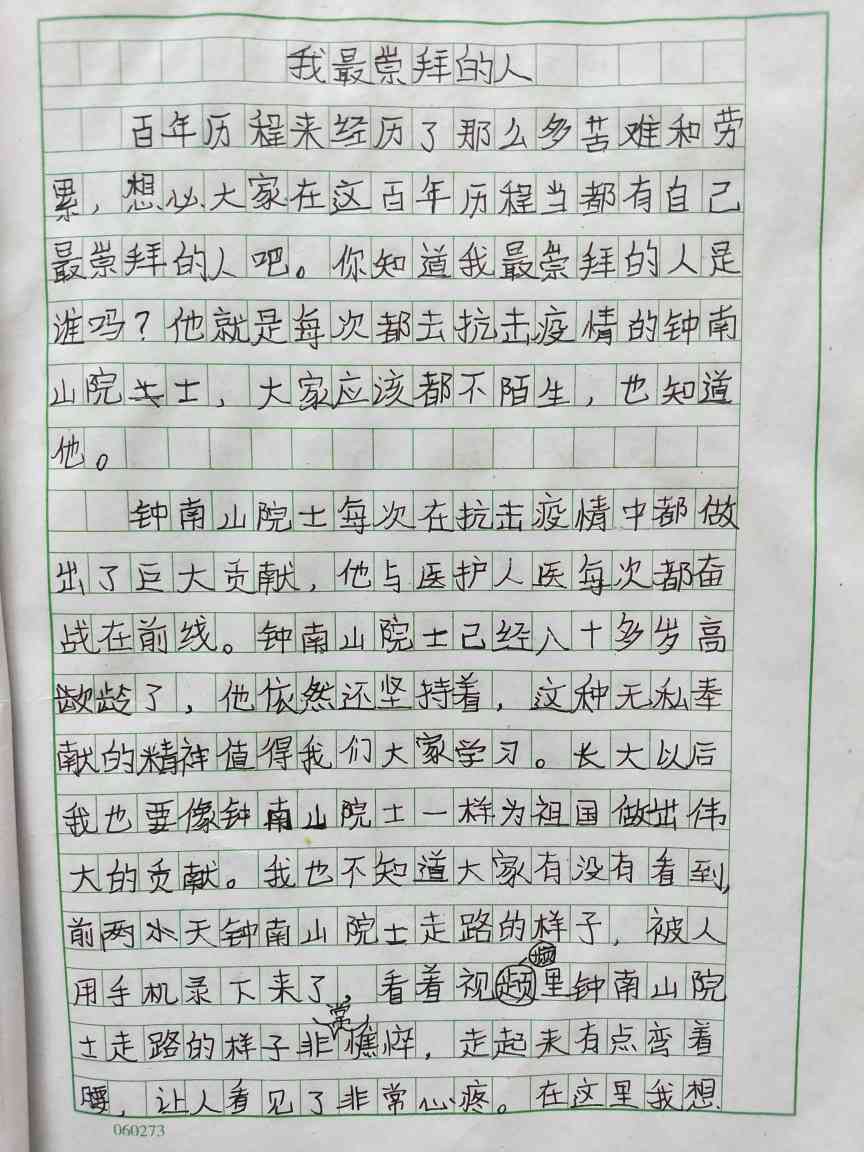 我最崇拜的人
百年历程来经历了那么多苦难和劳
累，想必大家在这百年历程当都有自己
最崇拜的人吧。你知道我最崇拜的人是
谁吗？他就是每次都去抗击疫情的钟南
山院士，大家应该都不陌生，也知道
他。
钟南山院士每次在抗击疫情中都做
出了巨大贡献，他与医护人医每次都奋
战在前线。钟南山院士已经八十多岁高
龄了，他依然还坚持着，这种无私奉
献的精神值得我们大家学习。长大以后
我也要像钟南山院士一样为祖国做出伟
大的贡献。我也不知道大家有没有看到，
前两天钟南山院士走路的样子，被人
用手机录下来了，看着视频里钟南山院
士走路的样子非常憔悴，走起来有点弯着
腰，让人看见了非常心疼。在这里我想
060273